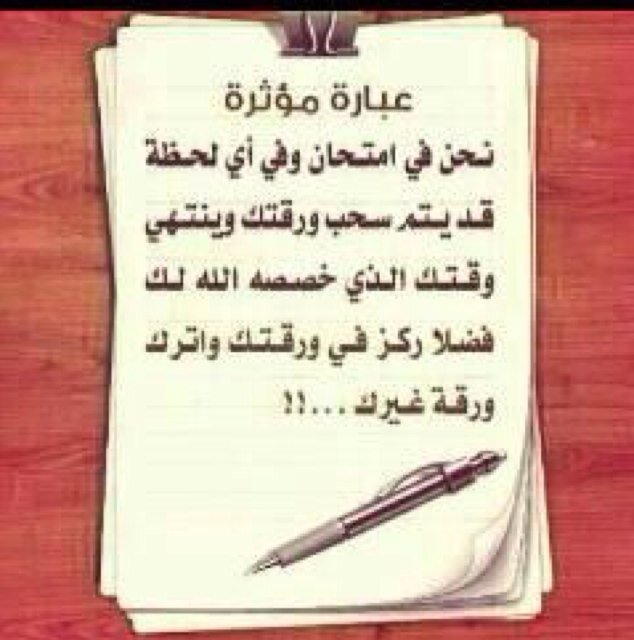 عبارة مؤثرة
نحن في امتحان وفي أي لحظة
قد يتم سحب ورقتك وينتهي
وقتك الذي خصصه الله لك
فضلا ركز في ورقتك واترك
ورقة غيرك ...!!